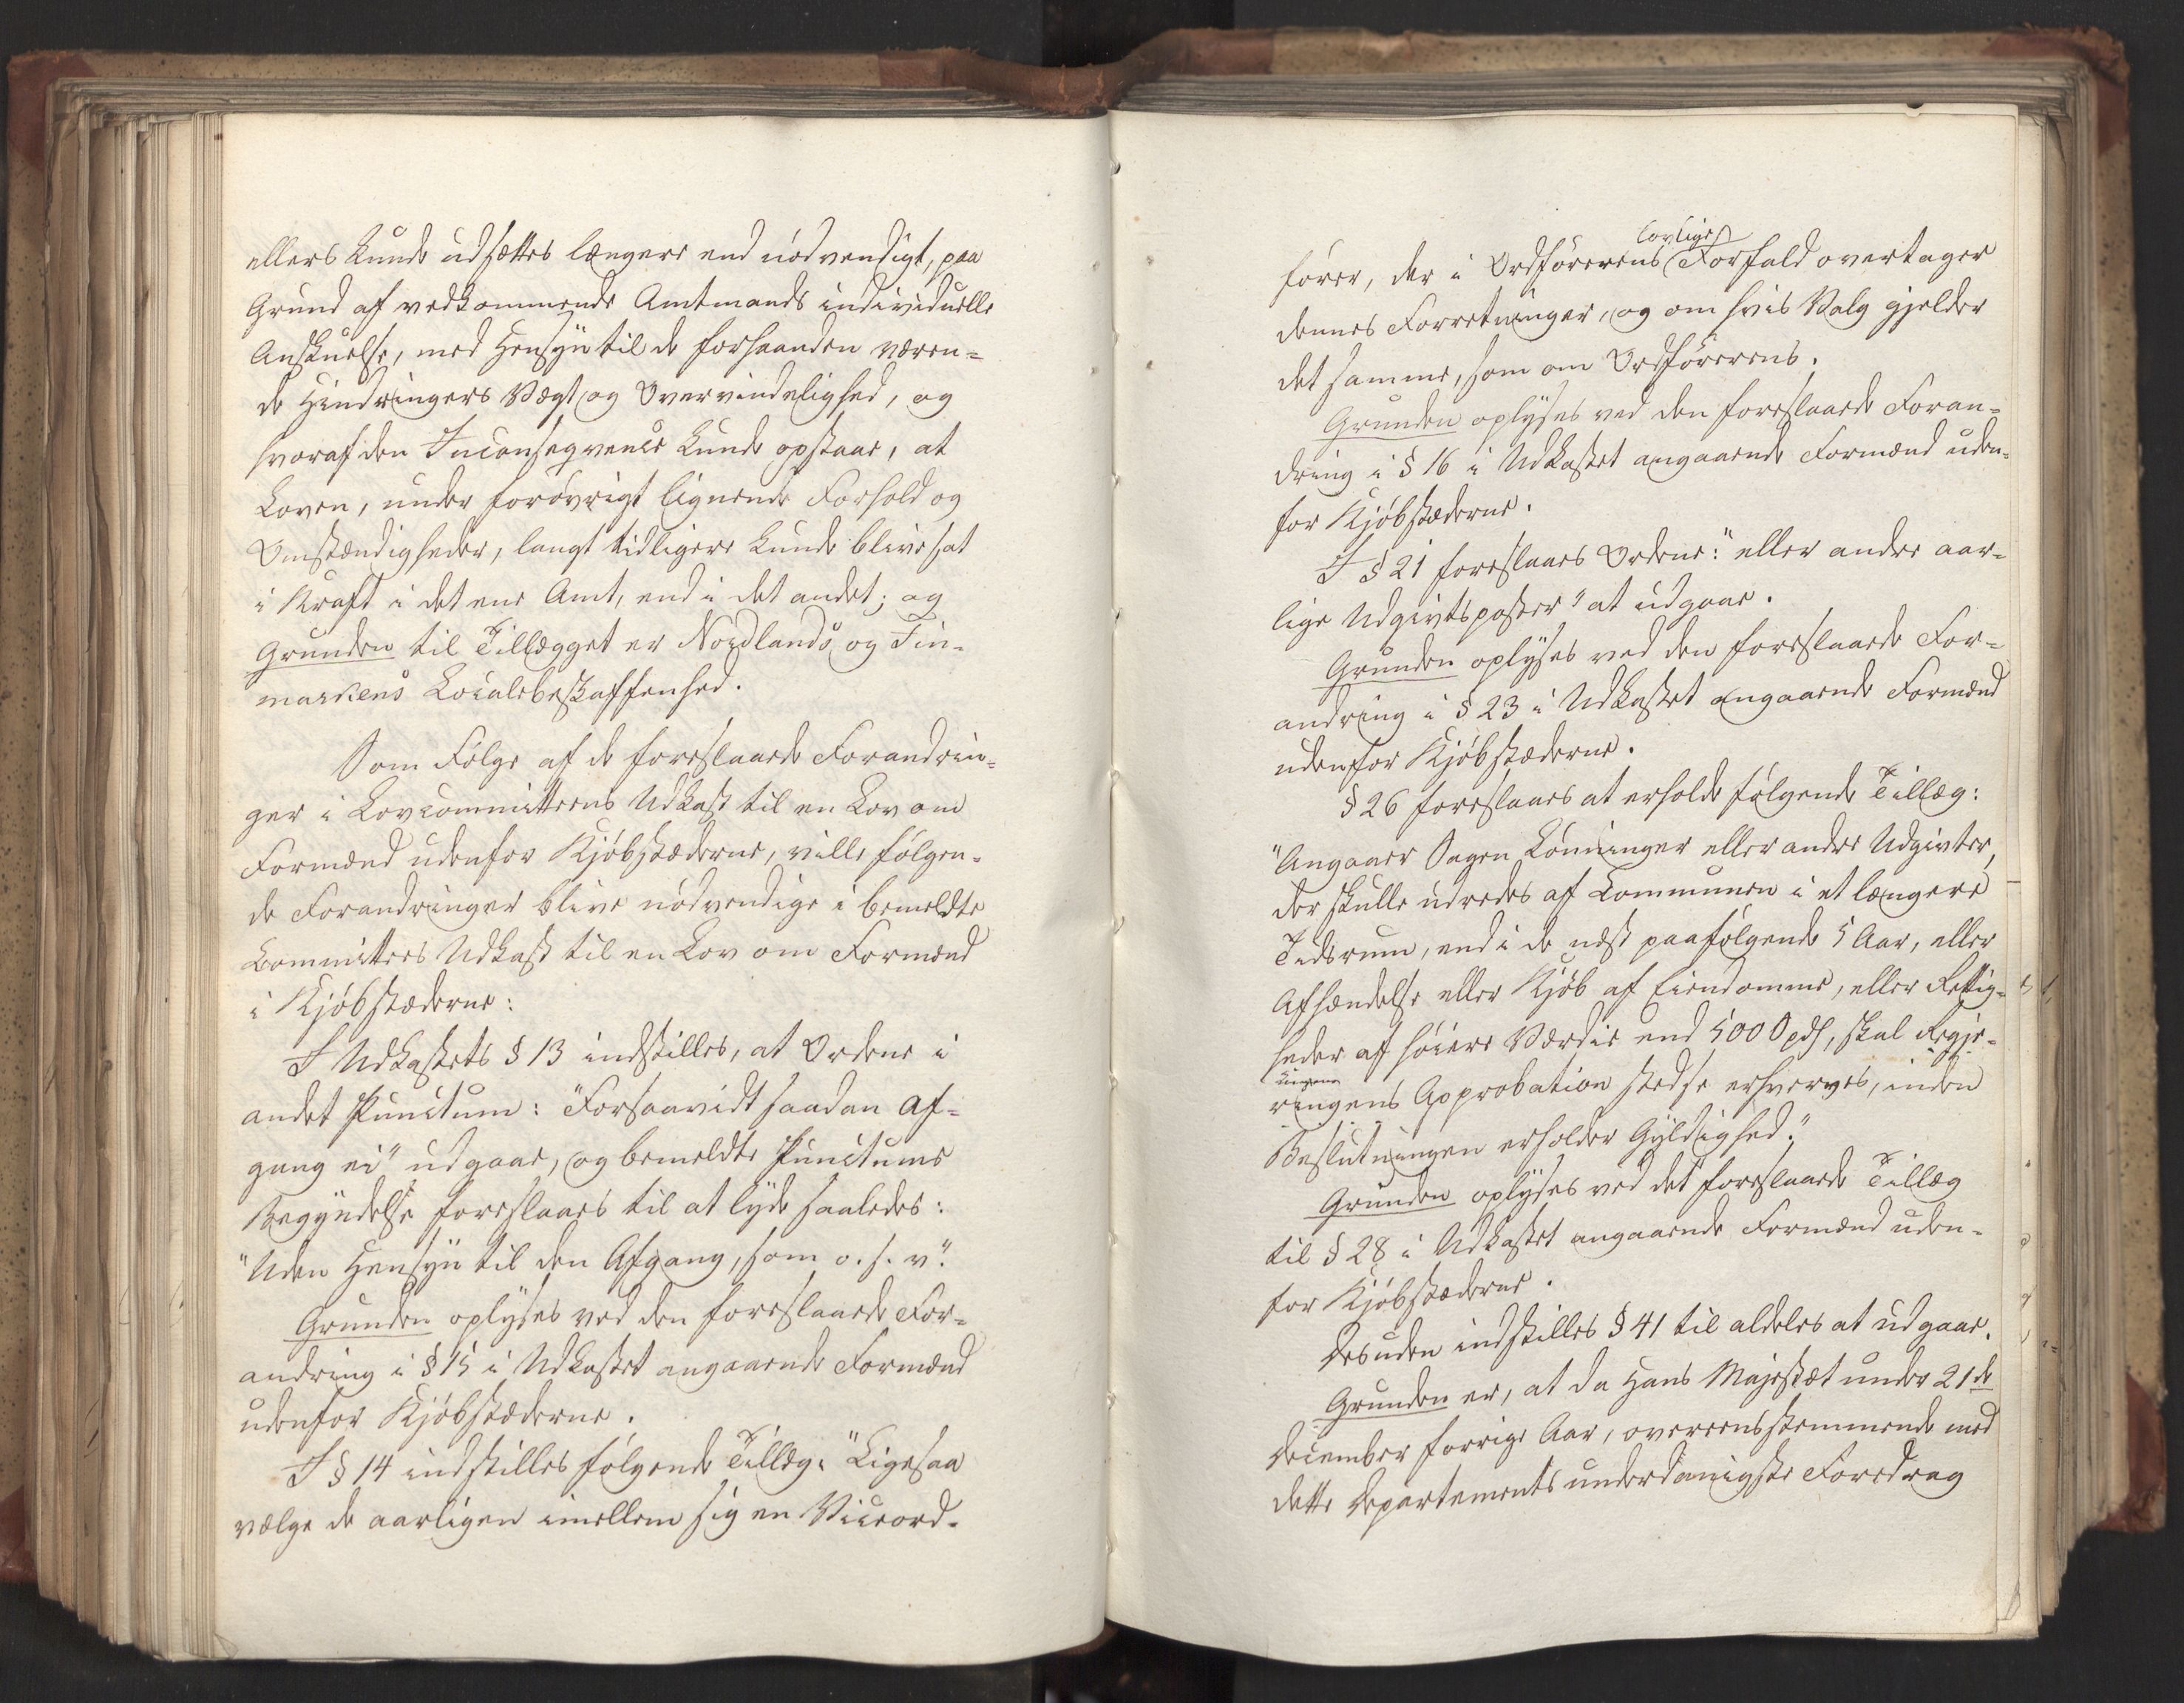 ellers kunde udsættes længere end nødvendigt, paa
Grund af vedkommende Amtmands individuelle
Anskuelse, med Hensyn til de forhaanden væren-
de Hindringers Vægt og Overvindelighed, og
hvoraf den Inconseqvence kunde opstaae, at
Loven, under forøvrigt lignende Forhold og
Omstændigheder, langt tidligere kunde blive sat
i Kraft i det ene Amt, end i det andet; og
Grunden til Tillægget er Nordlands og Fin-
markens Localebeskaffenhed.
Som Følge af de foreslaaede Forandrin-
ger i Lovcommitteens Udkast til en Lov om
Formænd udenfor Kjøbstæderne, ville følgen-
de Forandringer blive nødvendige i bemeldte
Committees Udkast til en Lov om Formænd
i Kjøbstæderne:
I Udkastets § 13 indstilles, at Ordene i
andet Punctum: "Forsaavidt saadan Af-
gang ei" udgaae, og bemeldte Punctums
Begyndelse foreslaaes til at lyde saaledes:
"Uden Hensyn til den Afgang, som o. s. v."
Grunden oplyses ved den foreslaaede For-
andring i § 15 i Udkastet angaaende Formænd
udenfor Kjøbstæderne.
I § 14 indstilles følgende Tillæg: "Ligesaa
vælge de aarligen imellem sig en Viceord-
lovlige
fører, der i Ordførerens Forfald overtager
dennes Forretninger, og om hvis Valg gjelder
det samme, som om Ordførerens.
Grunden oplyses ved den foreslaaede Foran-
dring i § 16 i Udkastet angaaende Formænd uden-
for Kjøbstæderne.
I § 21 foreslaaes Ordene: "eller andre aar-
lige Udgivtsposter" at udgaae.
Grunden oplyses ved den foreslaaede For-
andring i § 23 i Udkastet angaaende Formænd
udenfor Kjøbstæderne.
§ 26 foreslaaes at erholde følgende Tillæg:
"Angaaer Sagen Lønninger eller andre Udgivter,
der skulle udredes af Communen i et længere
Tidsrum, end i de næst paafølgende 5 Aar, eller
Afhændelse eller Kjøb af Eiendomme, eller Rettig-
heder af høiere Værdie end 500 Spd, skal Regje-
ringens Approbation stedse erhverves, inden
Beslutningen erholder Gyldighed."
Grunden oplyses ved det foreslaaede Tillæg
til § 28 i Udkastet angaaende Formænd uden-
for Kjøbstæderne.
Desuden indstilles § 41 til aldeles at udgaae.
Grunden er, at da Hans Majestæt under 21de
December forrige Aar, overeensstemmende med
dette Departements underdanigste Foredrag